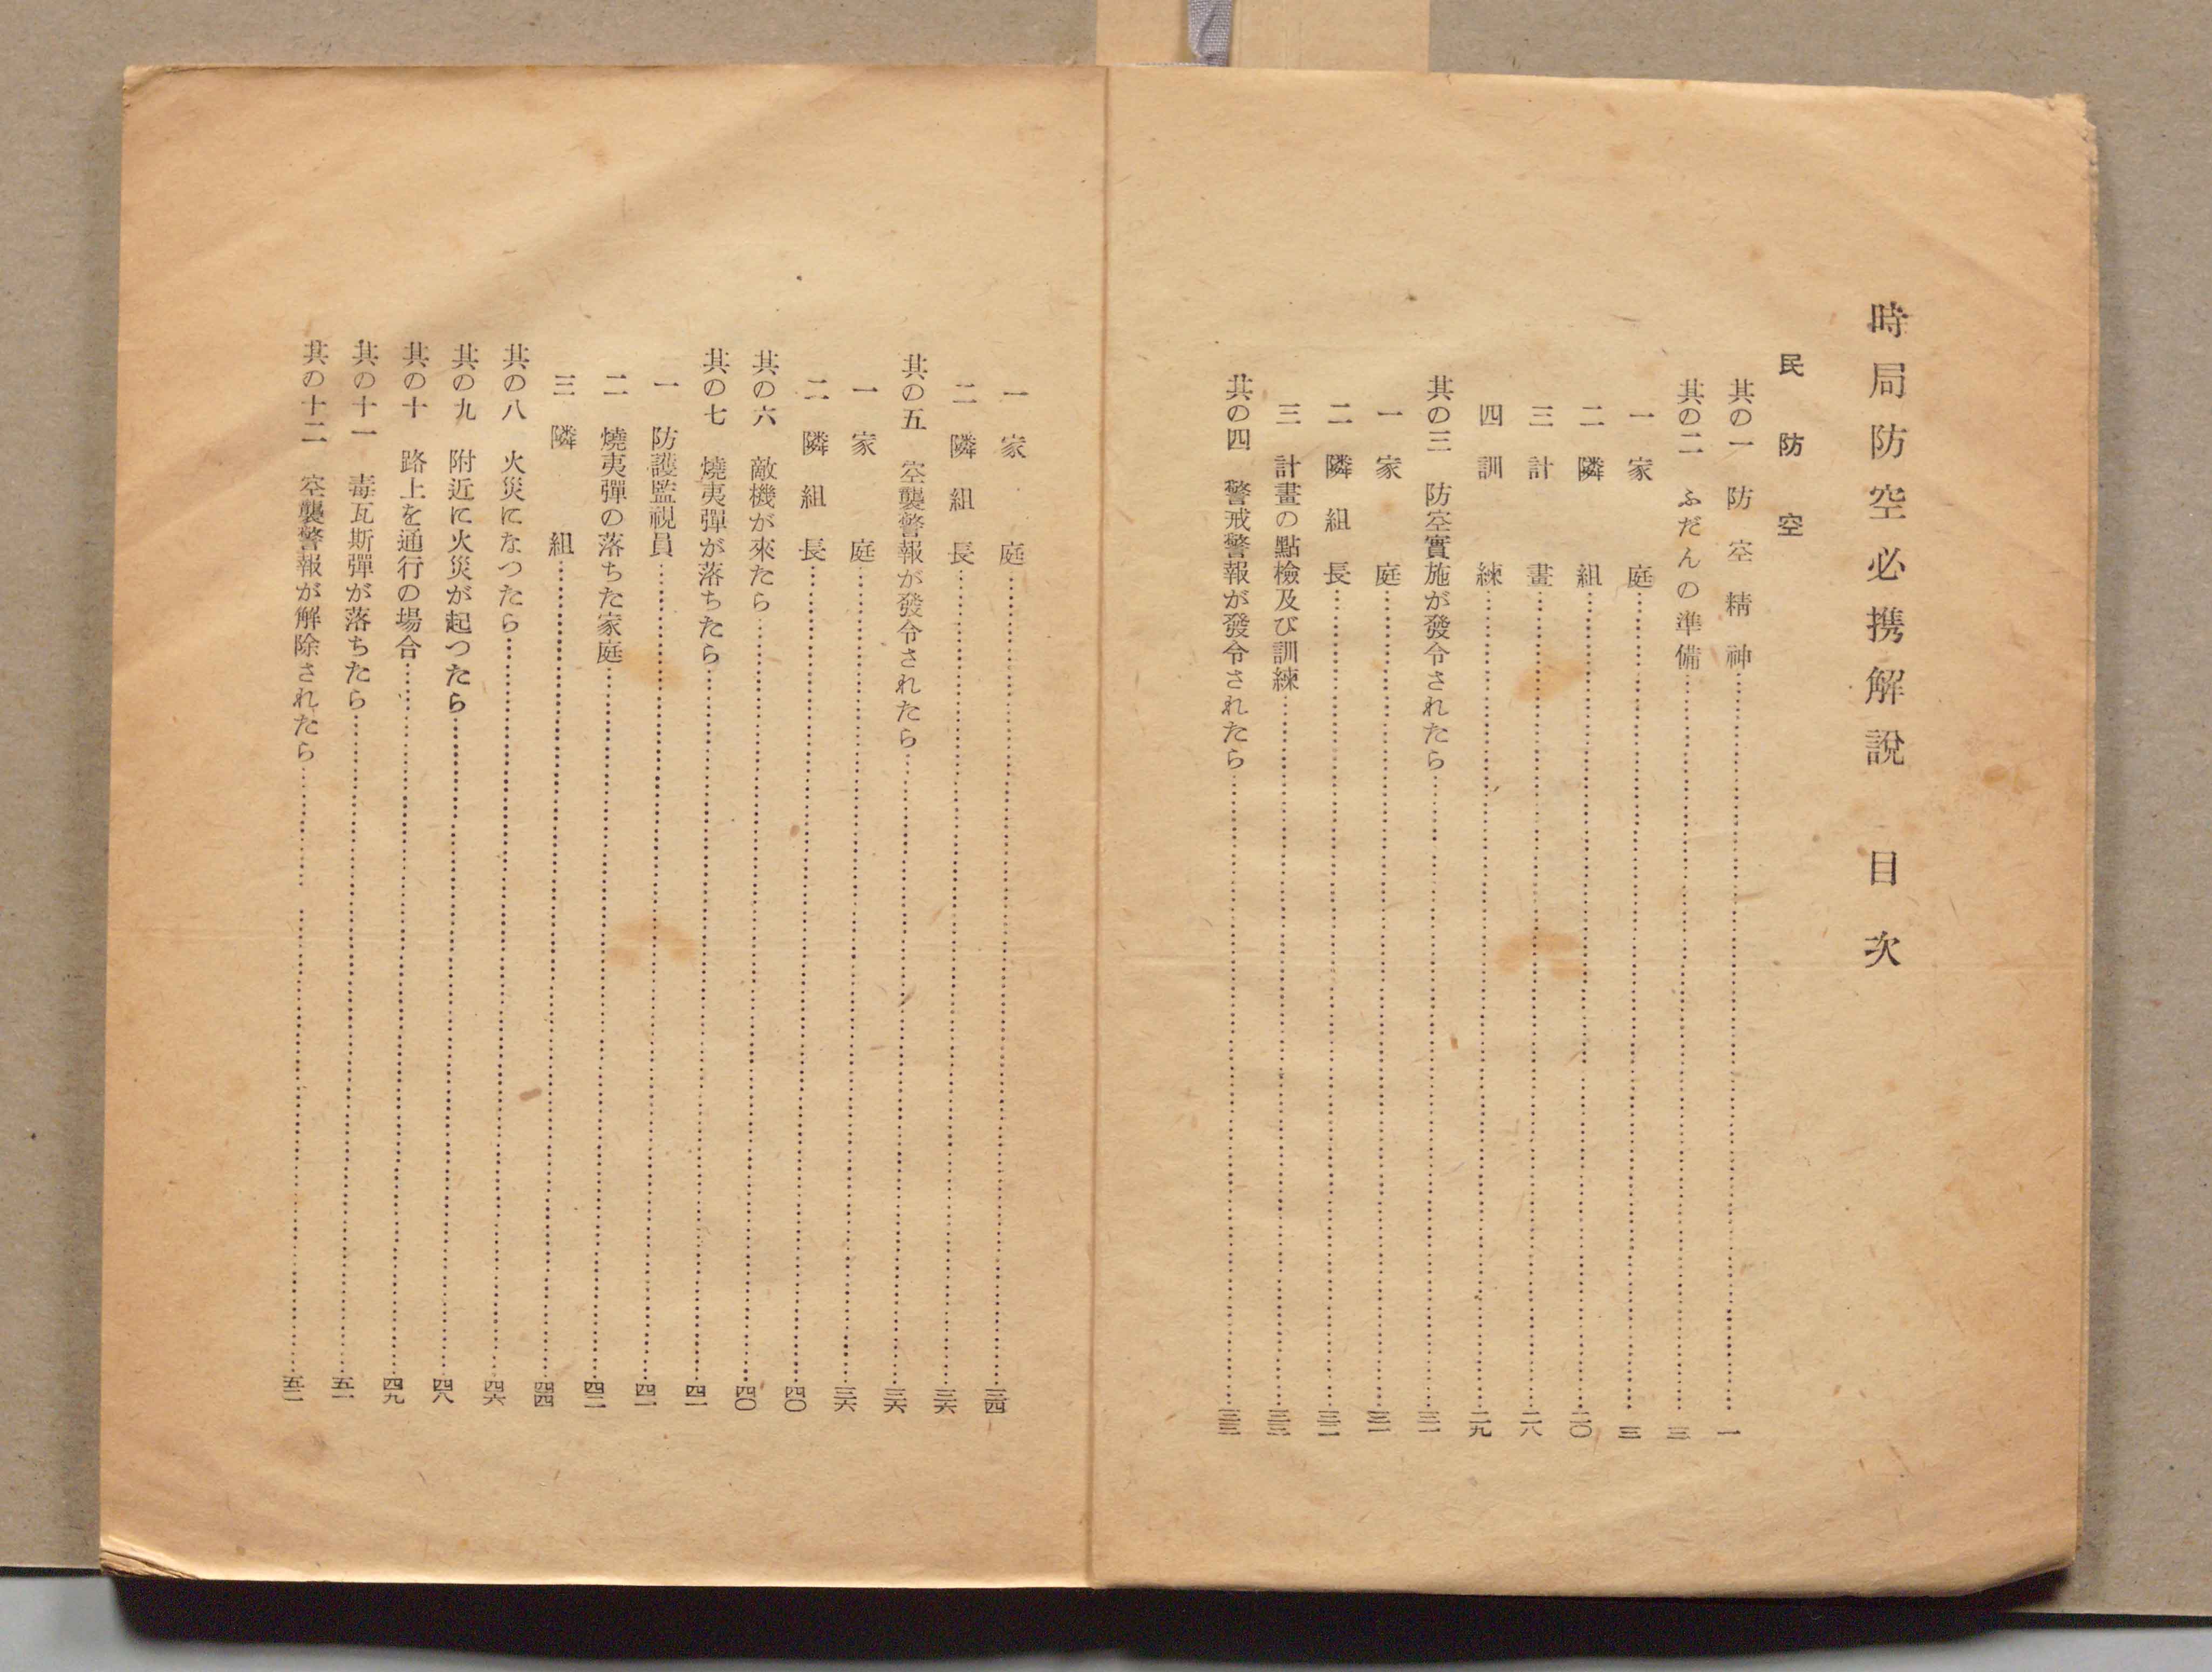 時局防空必携解說　目次
民防空
其の一　防空精神……一
其の二　ふだんの準備……三
一　家庭……三
二　隣組……二〇
三　計畫……二八
四　訓練……二九
其の三　防空實施が發令されたら……三一
一　家庭……三一
二　隣組長……三二
三　計畫の點檢及び訓練……三三
其の四　警戒警報が發令されたら……三三
一　家庭……三四
二　隣組長……三六
其の五　空襲警報が發令されたら……三六
一　家庭……三六
二　隣組長……四〇
其の六　敵機が來たら……四〇
其の七　燒夷彈が落ちたら……四一
一　防護監視員……四一
二　燒夷彈の落ちた家庭……四二
三　隣組……四四
其の八　火災になつたら……四六
其の九　附近に火災が起つたら……四八
其の十　路上を通行の場合……四九
其の十一　毒瓦斯彈が落ちたら……五一
其の十二　空襲警報が解除されたら……五二